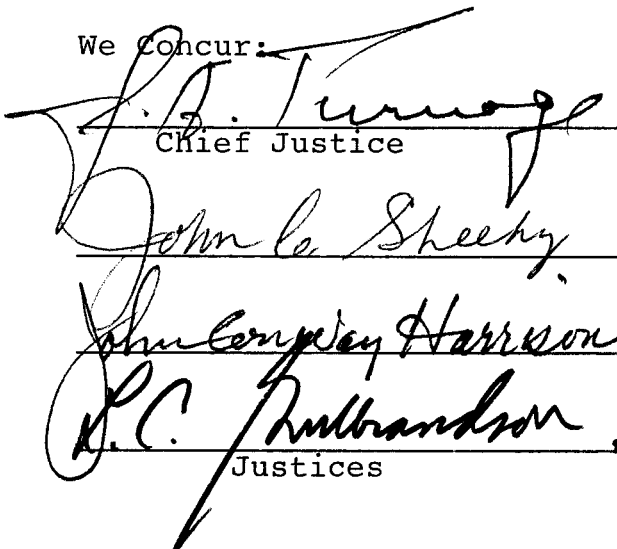 We Concur:
J. A. Turnage
Chief Justice
John C. Sheehy
John Conway Harrison
L. C. Gulbrandson
Justices